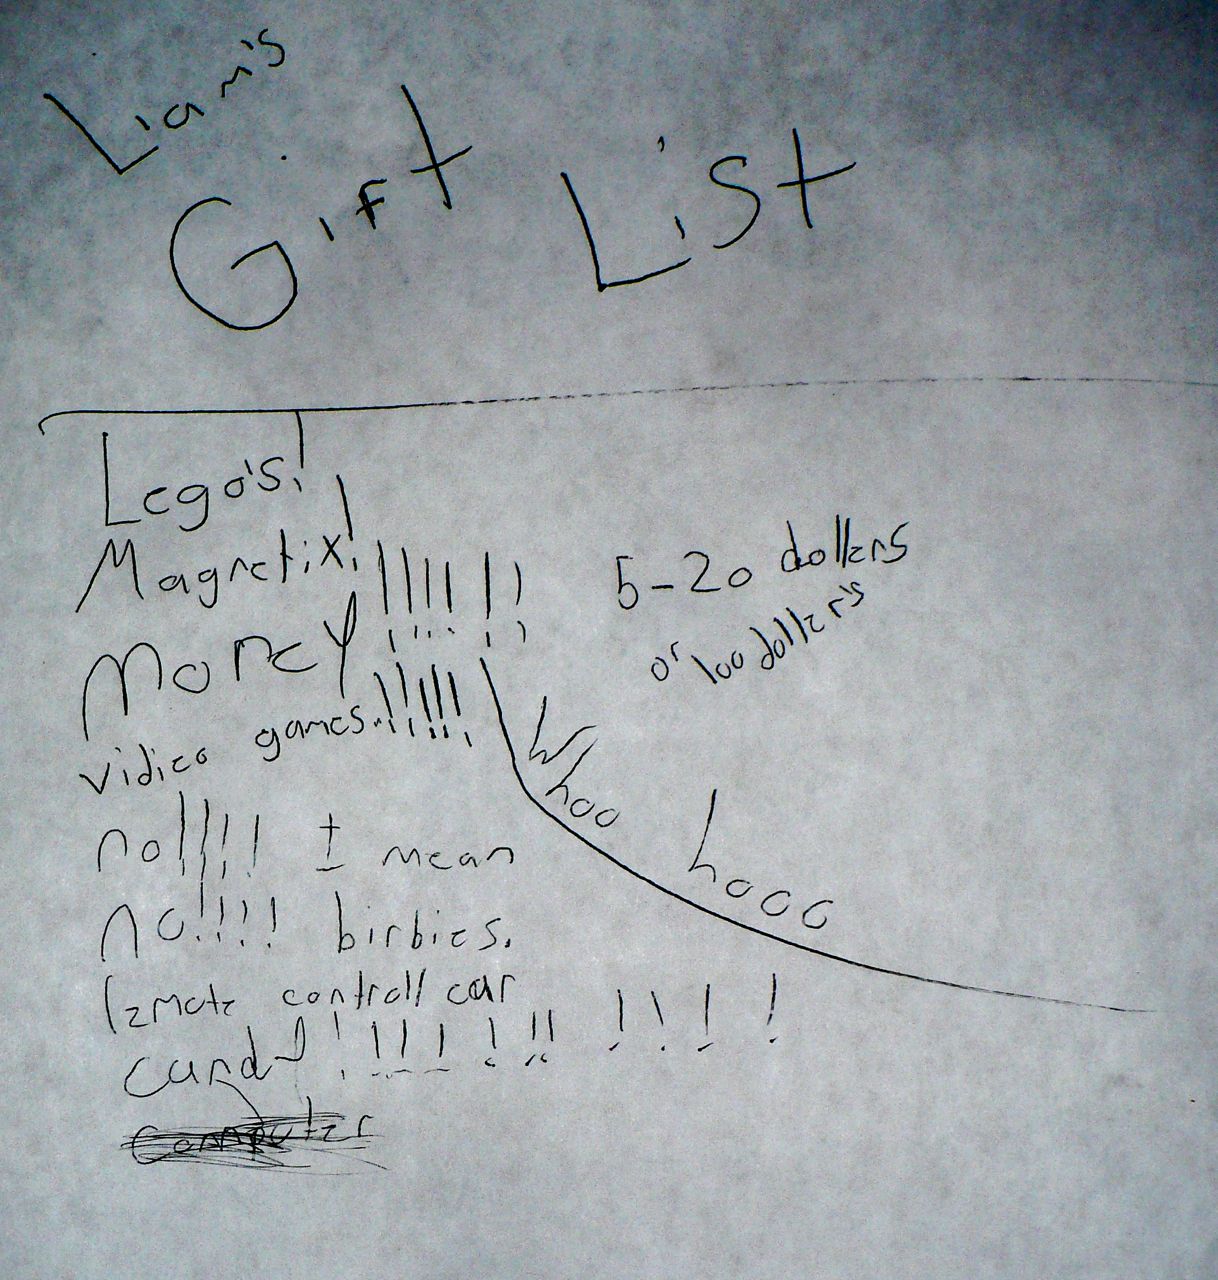 Liam's
Gift List
Lego's!
Magnetix!
Money!!!!!! 5-20 dollers
or 100 doller's
vidieo games!!!!!!
Whoo hooo
no!!!! I mean
no!!!! birbies.
remote controll car
candy!!!!!!!!!!!
Computer